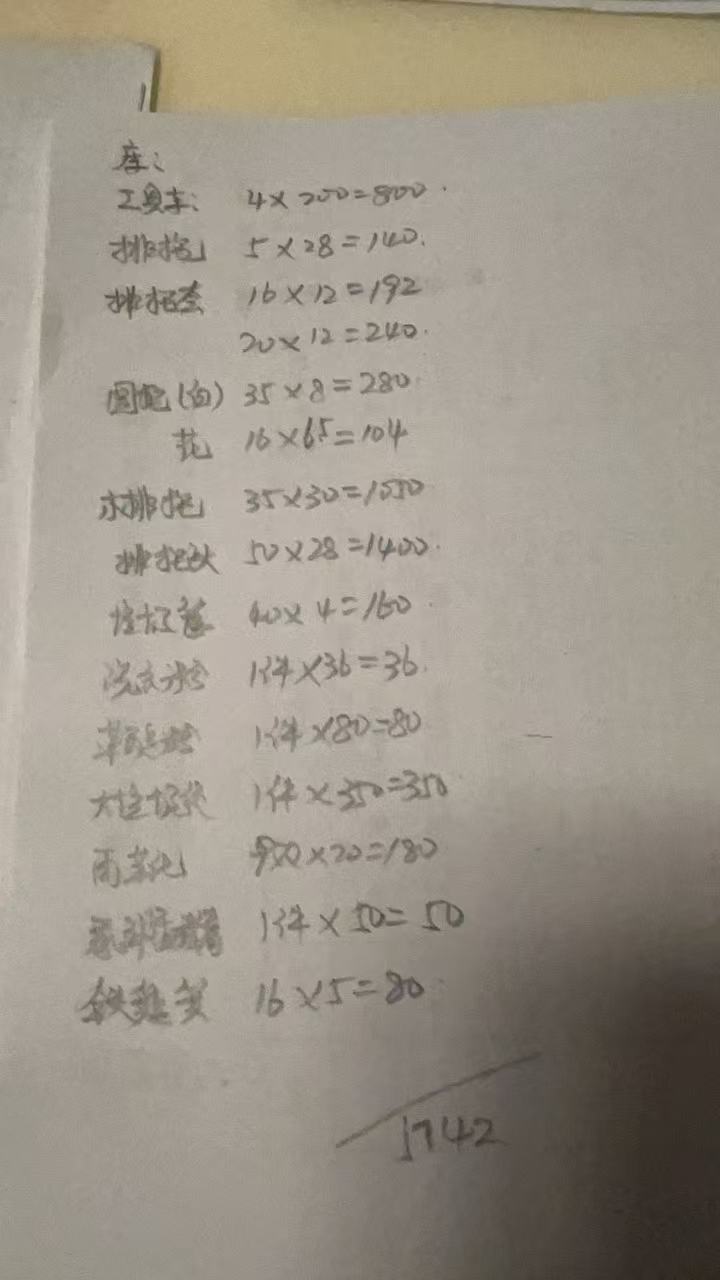 库:
工具车: 4×200=800.
排拖 5×28=140.
排拖套 16×12=192
20×12=240.
圆拖(白) 35×8=280.
花 16×65=104
木排拖 35×30=1050
排拖头 50×28=1400.
40×4=160.
1件×36=36.
1件×80=80
大垃圾袋 1件×350=350
×20=180
1件×50=50
16×5=80
5742